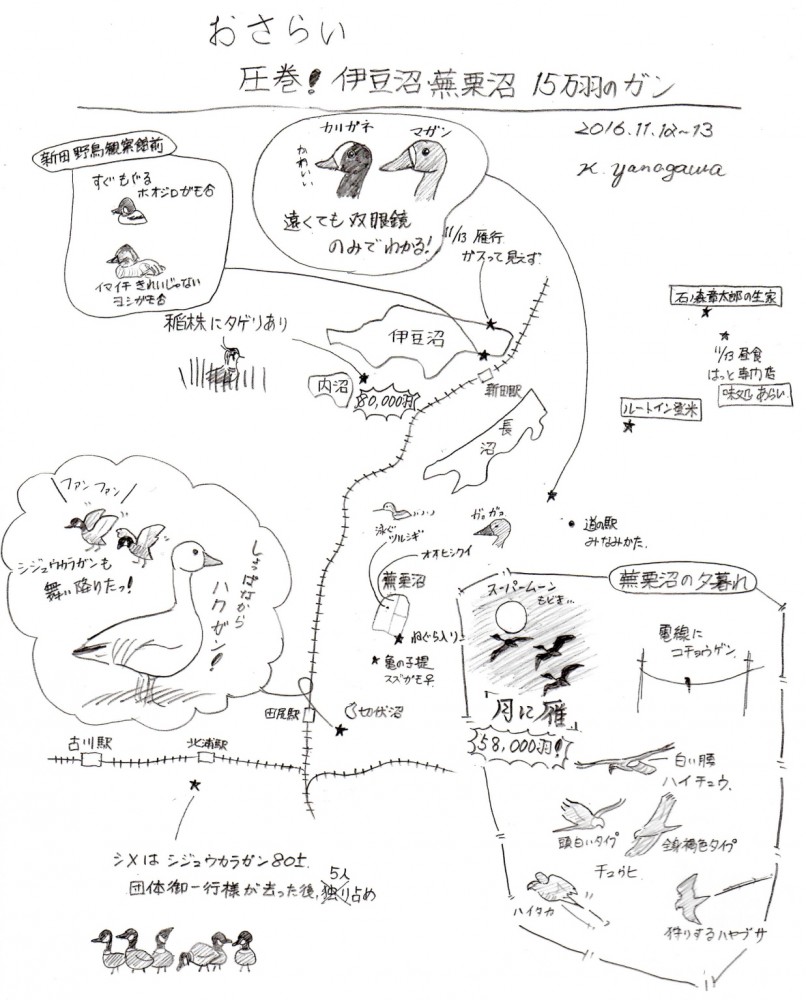 おさらい
圧巻! 伊豆沼・蕪栗沼 15万羽のガン
2016.11.12~13
K. yanagawa
新田野鳥観察館前
すぐもぐる
ホオジロガモ合
イマイチきれいじゃない
ヨシガモ合
カリガネ
マガン
かわいい
遠くても双眼鏡
のみでわかる!
11/13 雁行
ガスって見えず
稲株にタゲリあり
伊豆沼
内沼
80,000羽
新田駅
長沼
石ノ森章太郎の生家
11/13 昼食
はっと専門店
味処 あらい
ルートイン登米
道の駅
みなみかた
ファンファン
シジュウカラガンも
舞い降りたっ!
しょっぱなから
ハクガン!
泳ぐ
ツルシギ
オオヒシクイ
ガガガ
蕪栗沼
ねぐら入り
亀の子提
スズガモ早
切伏沼
田尻駅
古川駅
北浦駅
蕪栗沼の夕暮れ
スーパームーン
もどき…
「月に雁」
58,000羽!
電線に
コチョウゲン
白い腰
ハイチュウ
頭白いタイプ
全身褐色タイプ
チュウヒ
ハイタカ
狩りするハヤブサ
シメはシジュウカラガン80±
5人
団体御一行様が去った後、独り占め